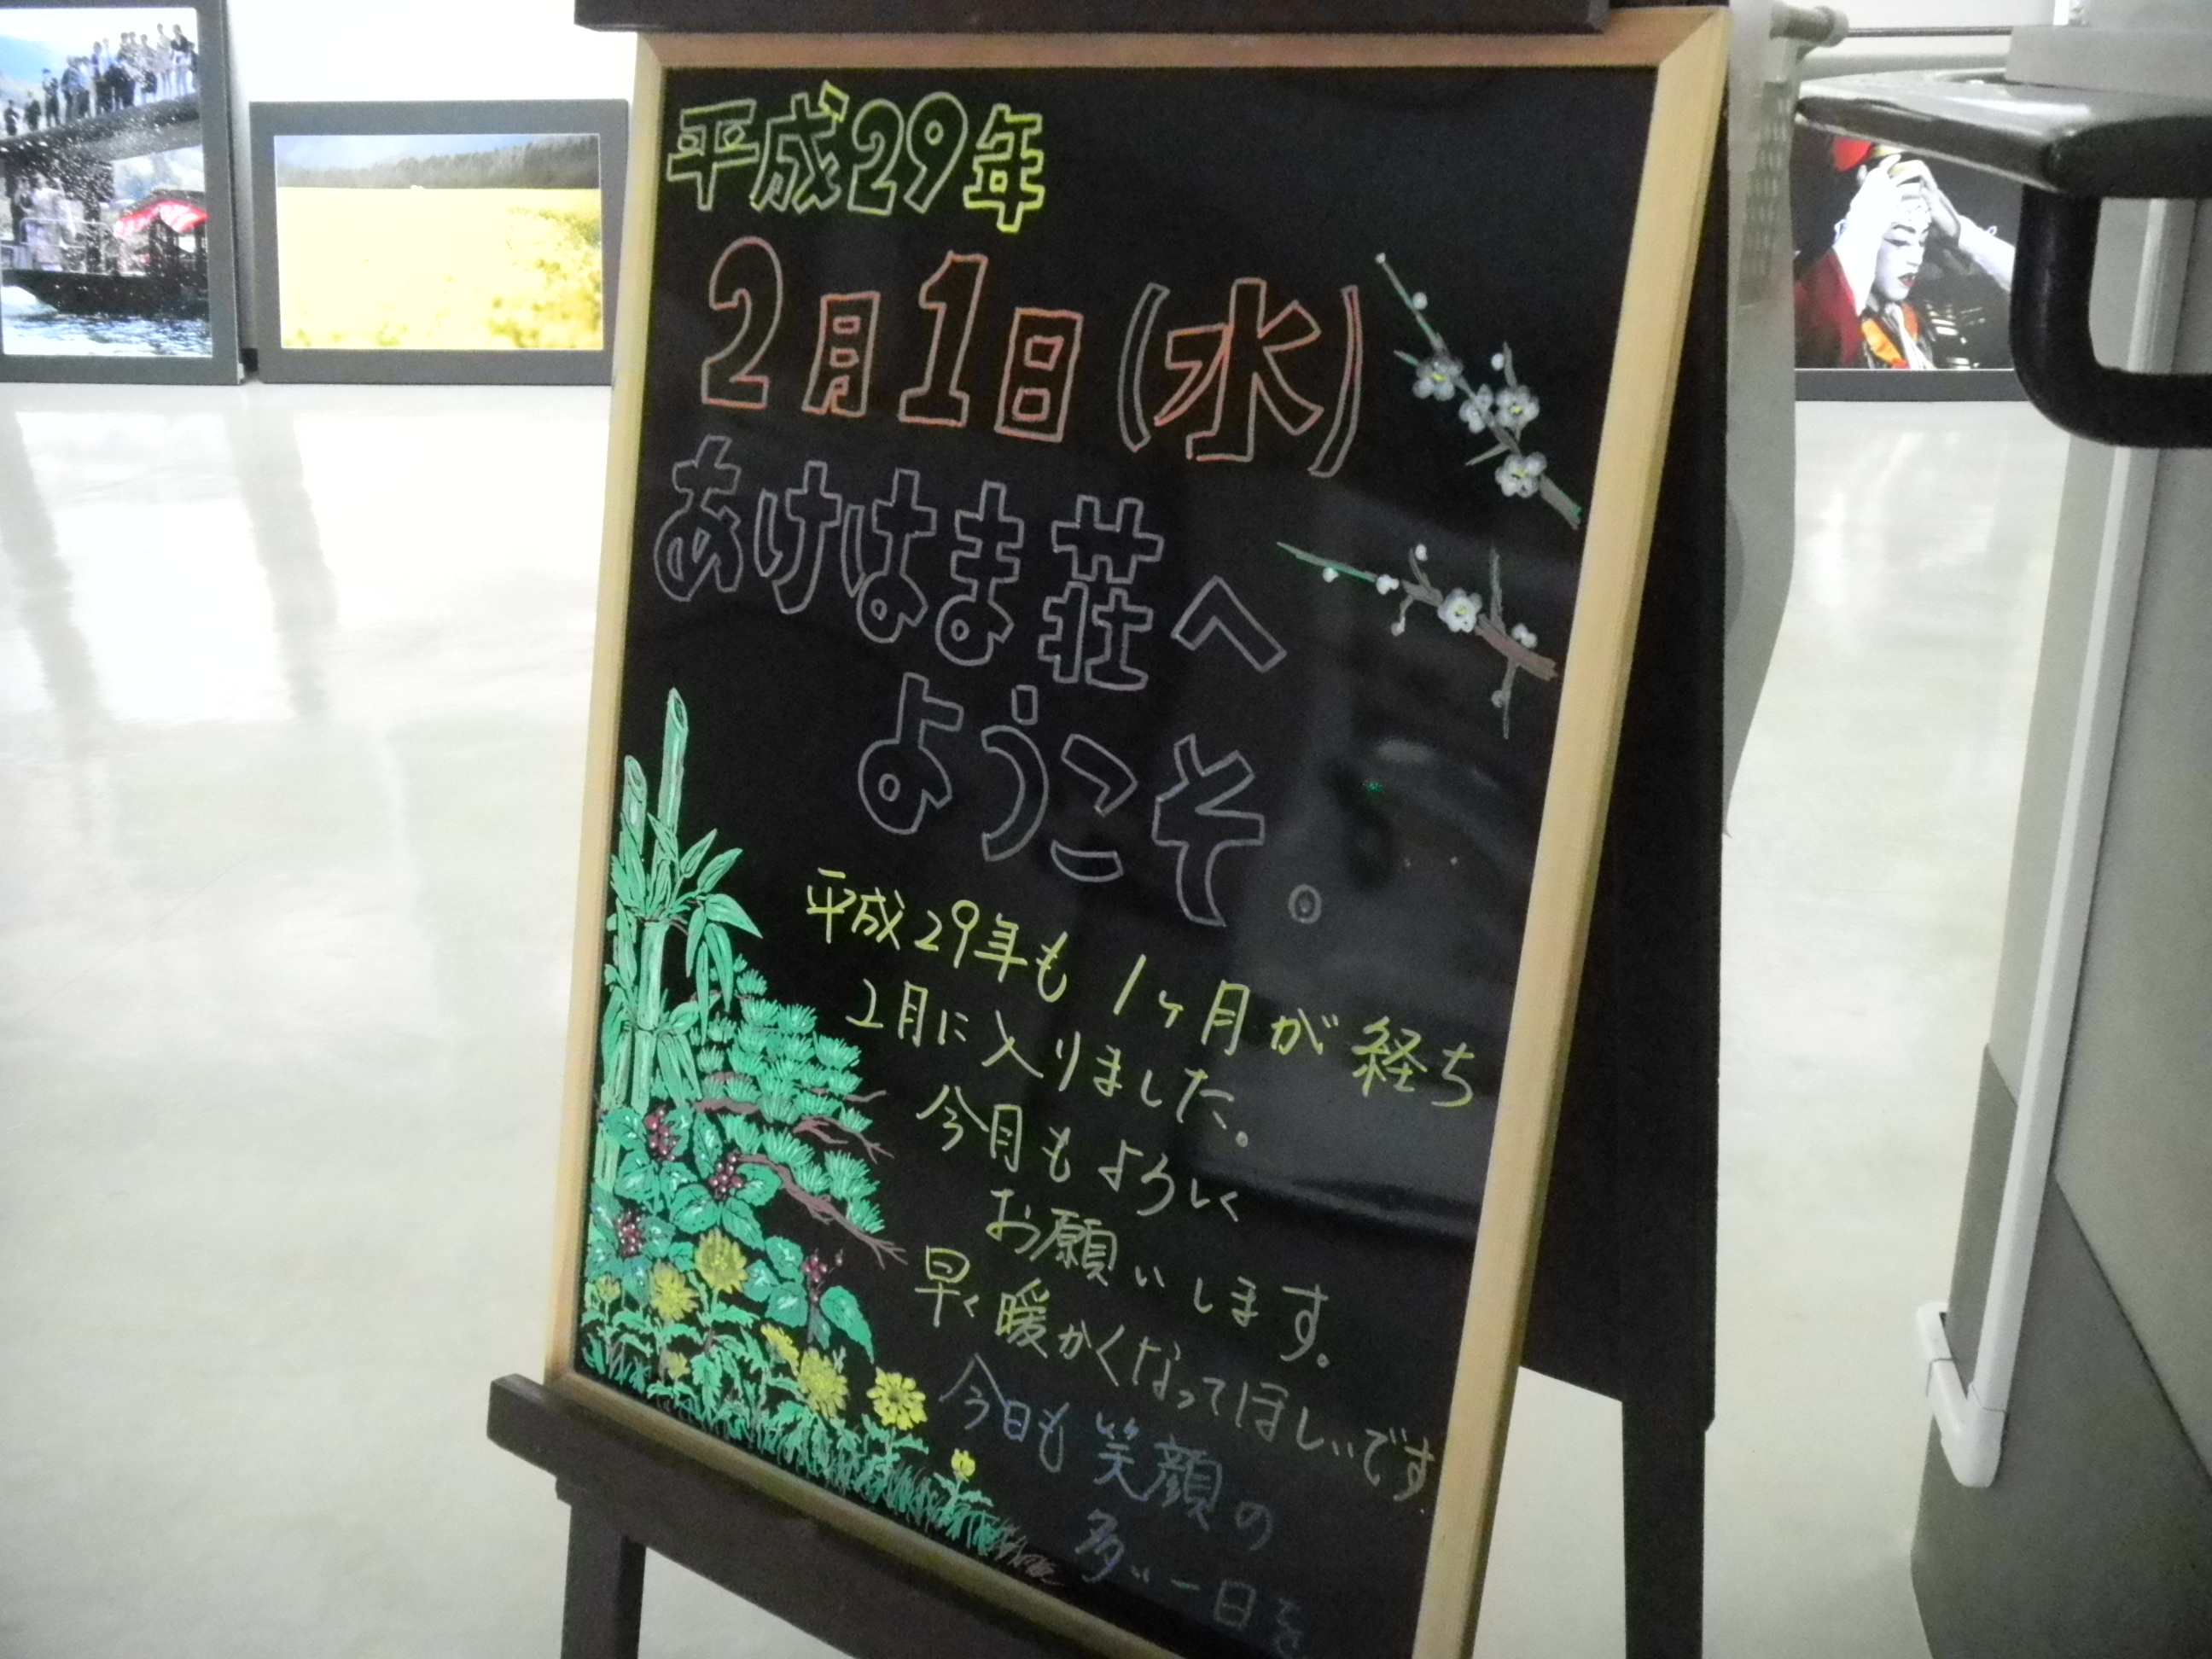 平成29年
2月1日(水)
あけはま荘へ
ようこそ。
平成29年も1ヶ月が経ち
2月に入りました。
今月もよろしく
お願いします。
早く暖かくなってほしいです。
今日も笑顔の
多い一日を